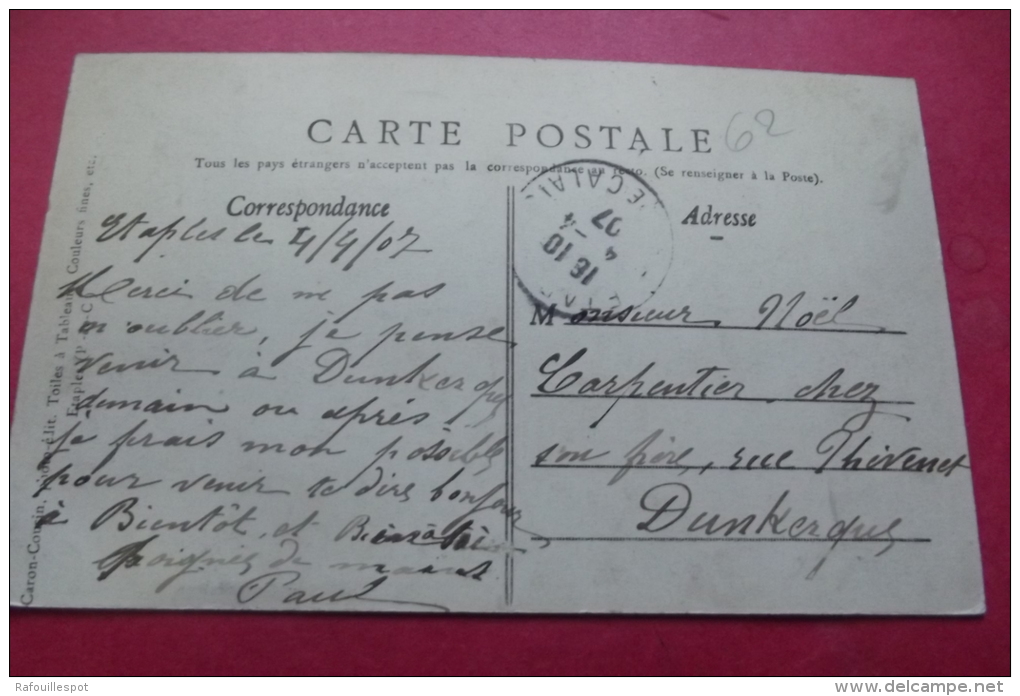 CARTE POSTALE
62
Tous les pays étrangers n'acceptent pas la correspondance au recto. (Se renseigner à la Poste).
Correspondance
Etaples le 4/4/07
Merci de ne pas
m'oublier, je pense
venir à Dunkerque
demain ou après
je frais mon possible
pour venir te dire bonjour
à Bientôt, et Bien à toi
Poignés de mains
Paul
Caron-Cousin, Photo-édit. Toiles à Tableaux, Couleurs fines, etc.
Etaples (P.-de-C
16 10
4 -4
07
E CALAI
ETAP
Adresse
Monsieur Noël
Carpentier, chez
son frère, rue Thévenet
Dunkerque
Rafouillespot
www.delcampe.net